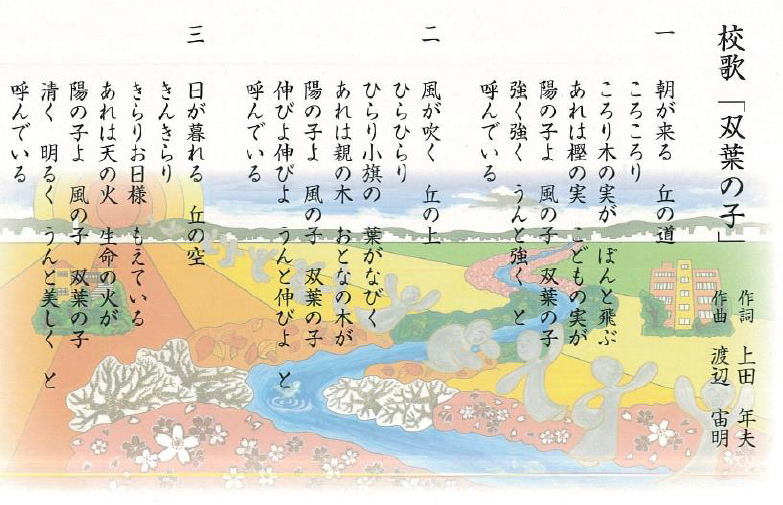 校歌「双葉の子」
作詞 上田 年夫
作曲 渡辺 宙明
一 朝が来る 丘の道
ころころり
ころり木の実が ぽんと飛ぶ
あれは樫の実 こどもの実が
陽の子よ 風の子 双葉の子
強く強く うんと強く と
呼んでいる
二 風が吹く 丘の上
ひらひらり
ひらり小旗の 葉がなびく
あれは親の木 おとなの木が
陽の子よ 風の子 双葉の子
伸びよ伸びよ うんと伸びよ と
呼んでいる
三 日が暮れる 丘の空
きんきらり
きらりお日様 もえている
あれは天の火 生命の火が
陽の子よ 風の子 双葉の子
清く 明るく うんと美しく と
呼んでいる